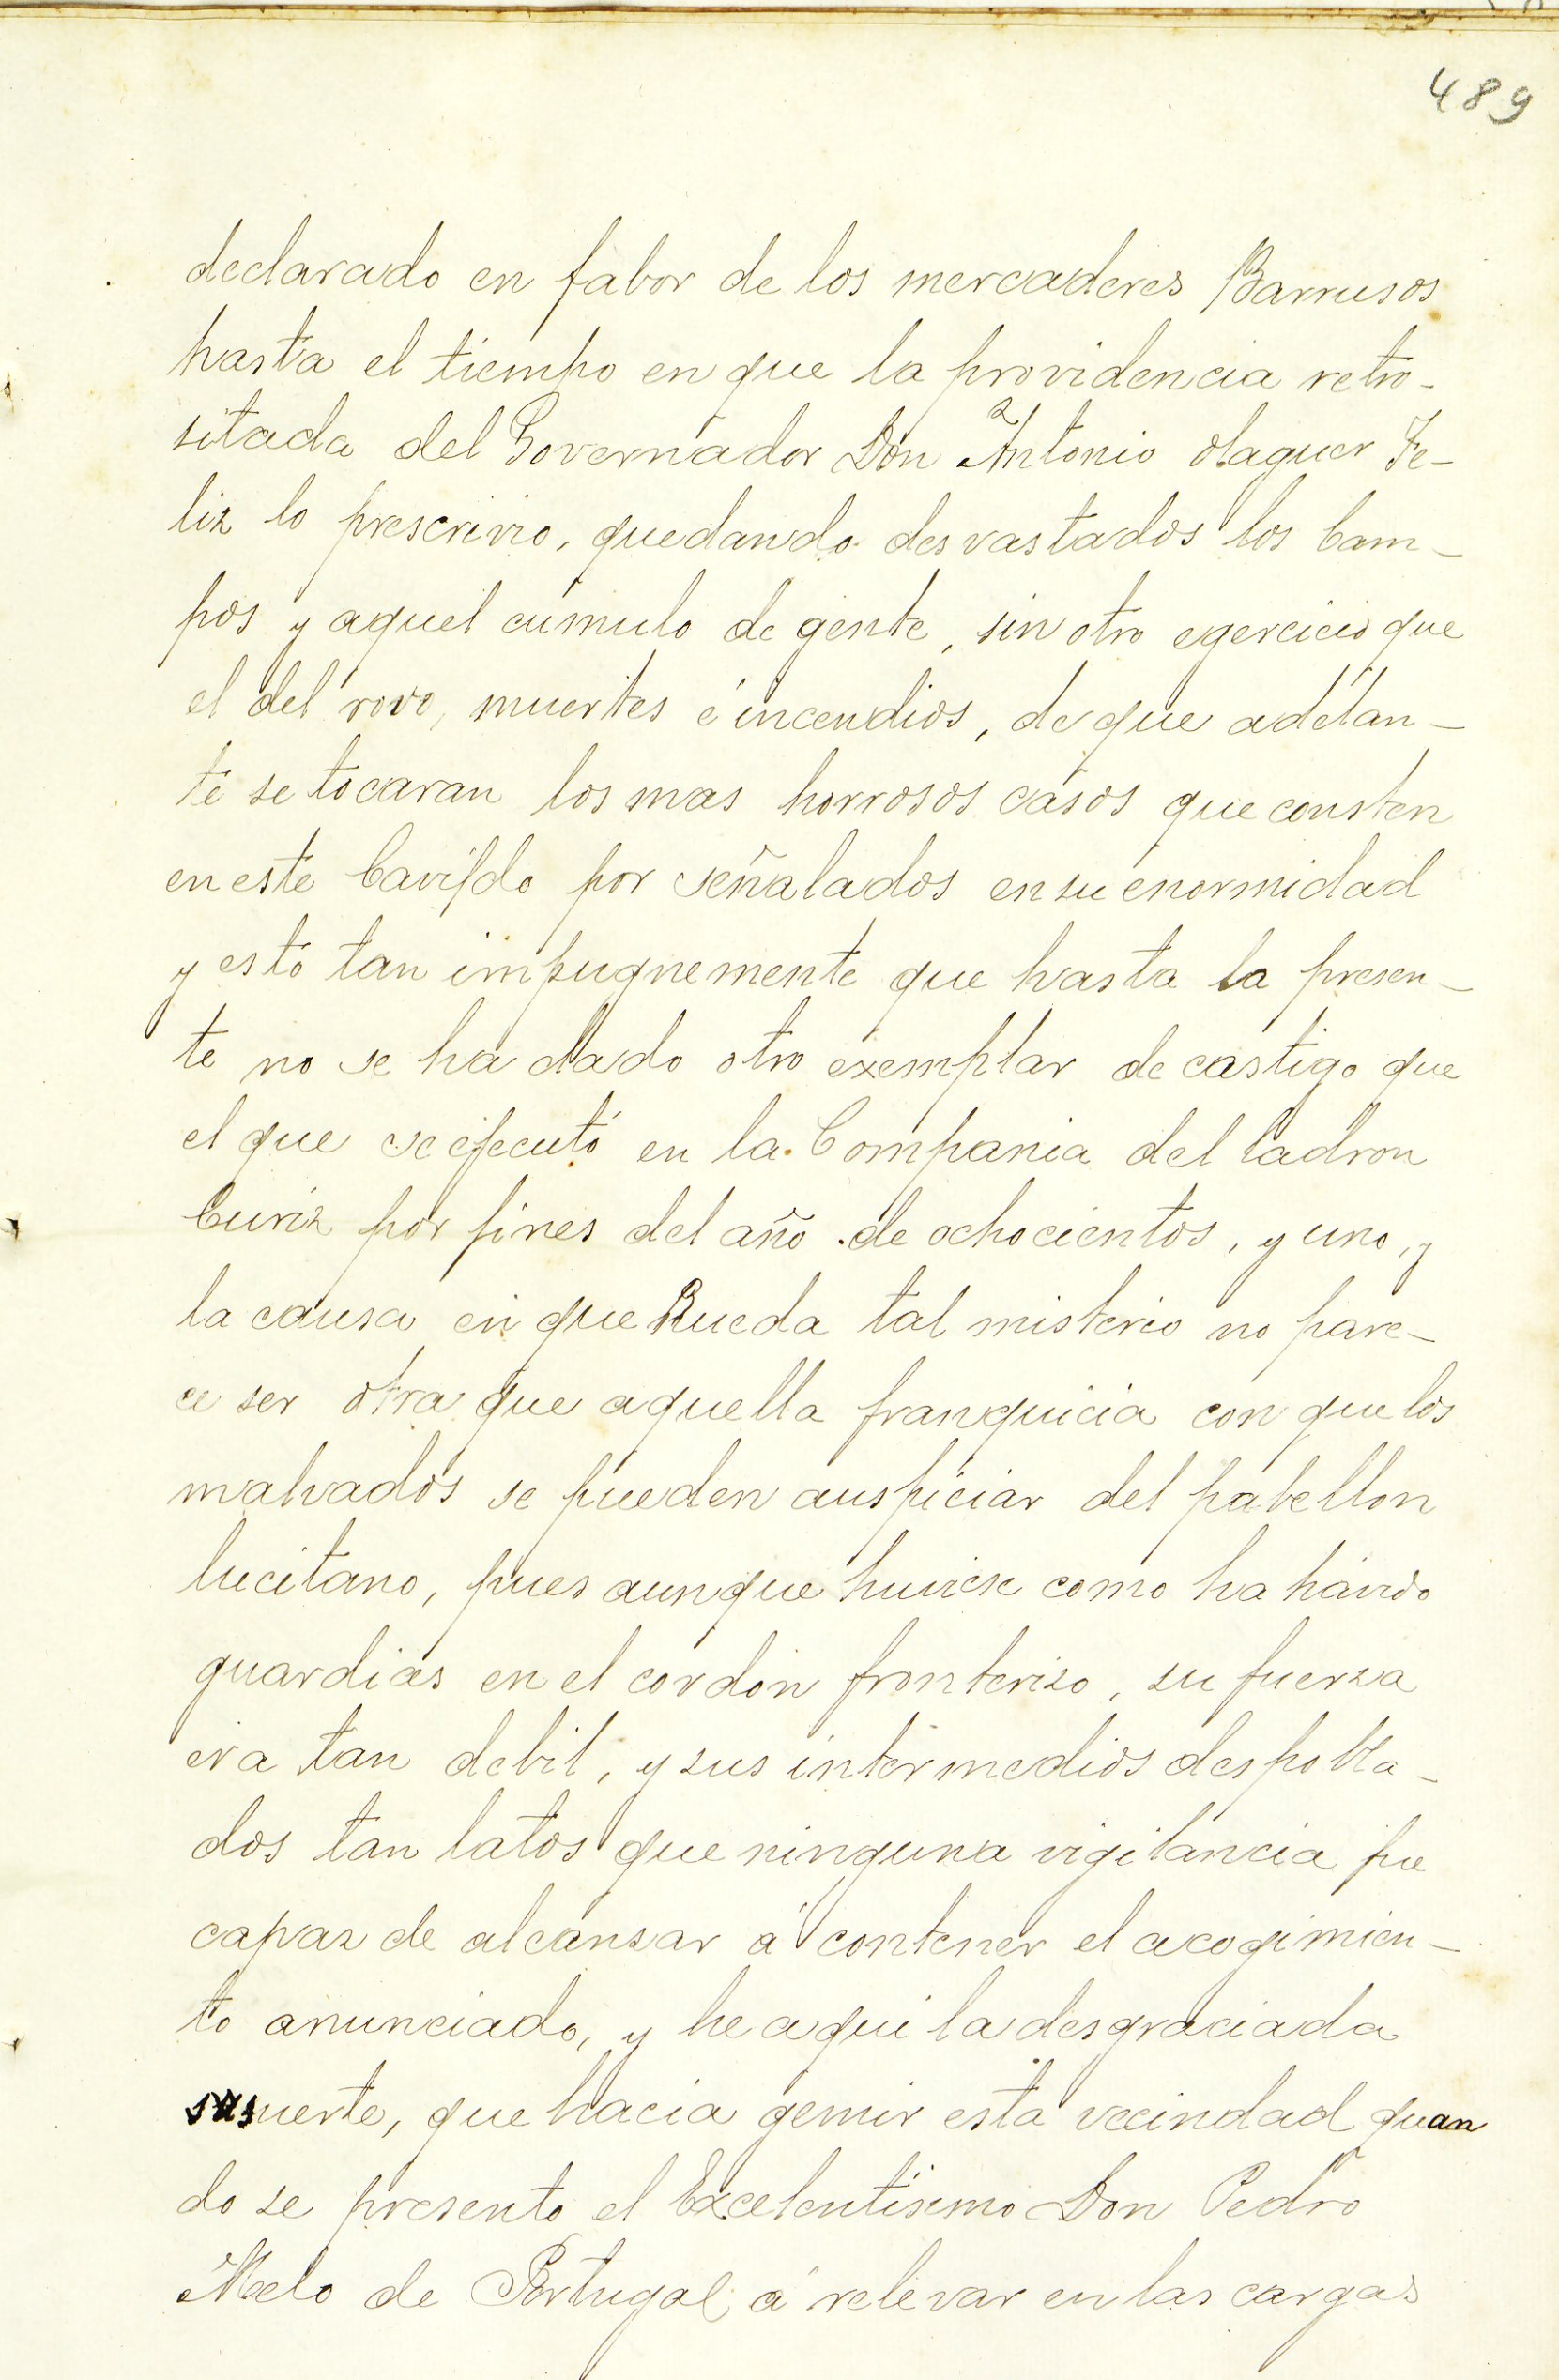 489
declarado en fabor de los mercaderes Barrusos
hasta el tiempo en que la providencia retro-
sitada del Governador Don Antonio olaguer Fe-
liz lo prescrivio, quedando desvastados los Cam-
pos y aquel cúmulo de gente, sin otro egercicio que
el del rovo, muertes é incendios, de que adelan-
te se tocaran los mas horrosos casos que consten
en este Cavildo por señalados en su enormidad
y esto tan impugnemente que hasta la presen-
te no se ha dado otro exemplar de castigo que
el que se ejecutó en la Compania del ladron
Curiz por fines del año de ochocientos, y uno, y
la causa en que Rueda tal misterio no pare-
ce ser otra que aquella franquicia con que los
malvados se pueden auspiciar del pabellon
lucitano, pues aunque huviese como ha havido
guardias en el cordon fronteriso, su fuersa
era tan debil, y sus intermedios despobla-
dos tan latos que ninguna vigilancia fue
capas de alcansar á contener el acogimien-
to anunciado, y he aqui la desgraciada
suerte, que hacia gemir esta vecindad quan
do se presento el Excelentisimo Don Pedro
Melo de Portugal, á relevar en las cargas